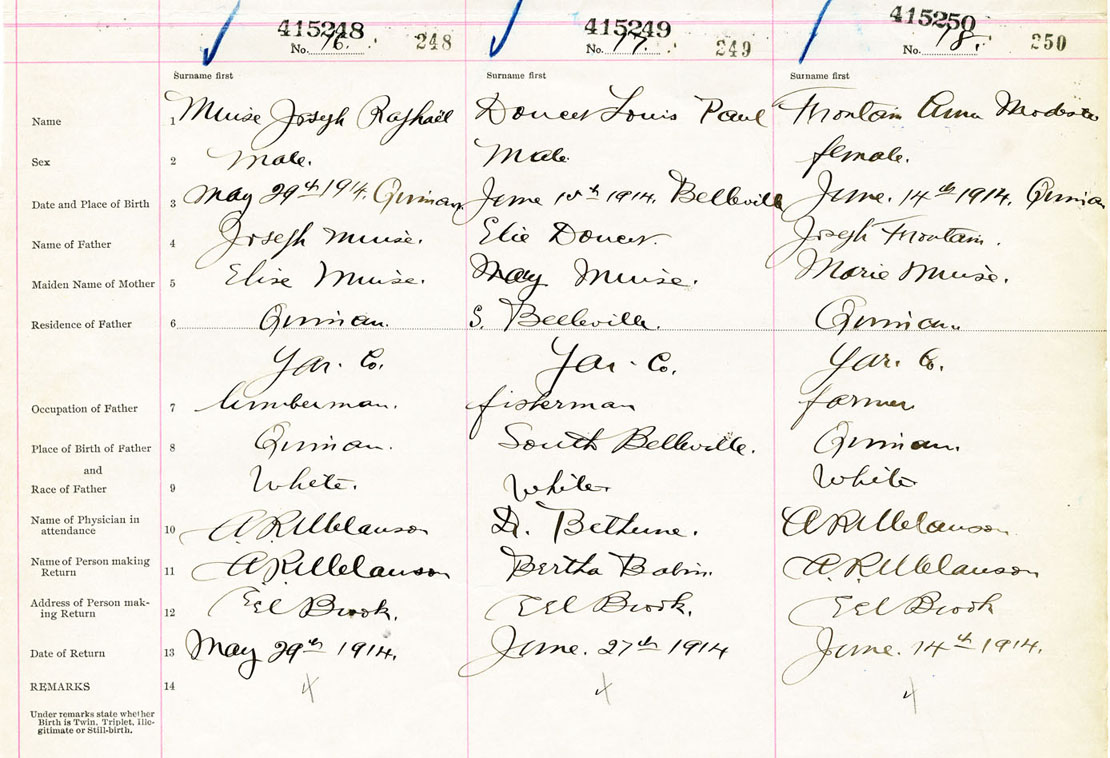 415248 415249 415250
No. 76. 248 No. 77. 249 No. 78. 250
Surname first Surname first Surname first
Name 1 Muise Joseph Raphaël Doucet Louis Paul Frontain Anna Modeste
Sex 2 Male. Male female.
Date and Place of Birth 3 May 29th 1914. Quinan June 10th 1914. Belleville June. 14th 1914. Quinan
Name of Father 4 Joseph Muise. Elie Doucet. Joseph Frontain.
Maiden Name of Mother 5 Elise Muise. May Muise. Marie Muise.
Residence of Father 6 Quinan. S. Belleville. Quinan.
Yar. Co. Yar. Co. Yar. Co.
Occupation of Father 7 lumberman. fisherman farmer
Place of Birth of Father 8 Quinan. South Belleville. Quinan.
and
Race of Father 9 White. White White
Name of Physician in
attendance 10 A R Melanson Dr. Bethune. A R Melanson
Name of Person making
Return 11 A. R. Melanson Bertha Babin. A. R. Melanson
Address of Person mak-
ing Return 12 Eel Brook. Eel Brook. Eel Brook
Date of Return 13 May 29th 1914. June. 27th 1914 June. 14th 1914.
REMARKS 14 x x x
Under remarks state whether
Birth is Twin, Triplet, Ille-
gitimate or Still-birth.